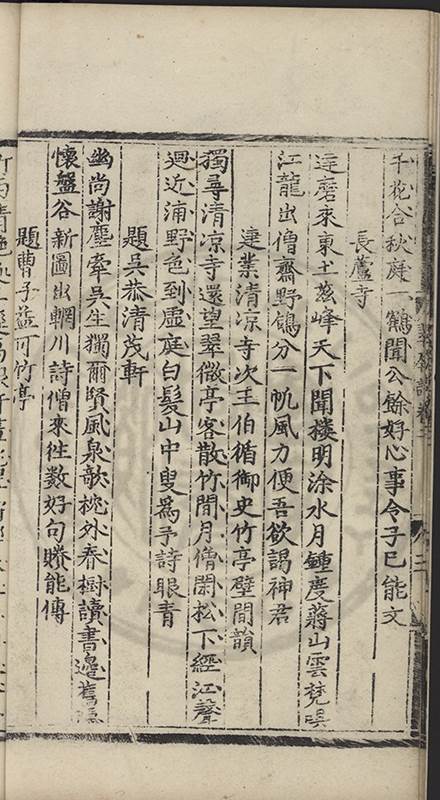 千花合秋庭一鶴聞公餘好心事令子已能文
長蘆寺
達磨來東土茲峰天下聞樓明涂水月鍾度蔣山雲梵
江龍出僧齋野鴿分一帆風力便吾欲謁神君
建業清凉寺次王伯循御史竹亭壁間韻
獨尋清凉寺還望翠微亭客散竹間月僧閑松下經江聲
迴近浦野色到虛庭白髮山中叟爲予詩眼青
題吳恭清茂軒
幽尚謝塵牽吳生獨爾賢風泉歌枕外春樹讀書邊舊
懷盤谷新圖出輞川詩僧來往數好句賸能傳
題曹子益可竹亭